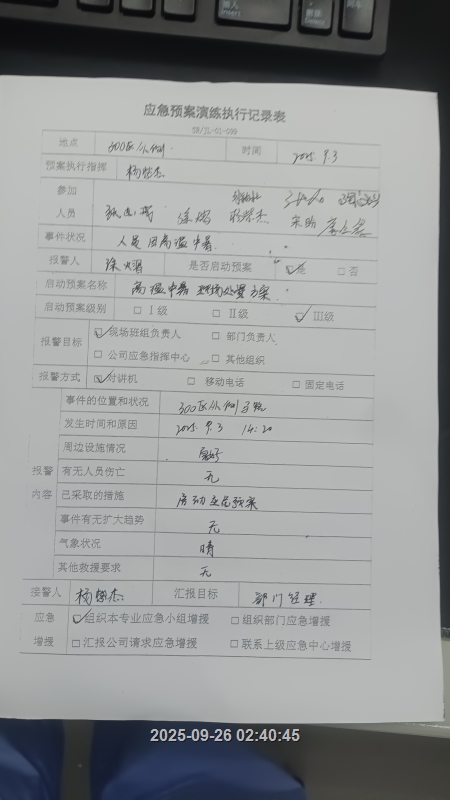 应急预案演练执行记录表
SH/JL-01-009
地点 300区 时间 2025. 9.3
预案执行指挥
参加
人员
事件状况 人员因高温中暑
报警人 是否启动预案 ☑是 □否
启动预案名称 高温中暑现场处置方案
启动预案级别 □Ⅰ级 □Ⅱ级 ☑Ⅲ级
报警目标 ☑现场班组负责人 □部门负责人
□公司应急指挥中心 □其他组织
报警方式 ☑对讲机 □移动电话 □固定电话
事件的位置和状况 300区
发生时间和原因 2025. 9.3 14:20
周边设施情况 良好
报警 有无人员伤亡 无
内容 已采取的措施 启动应急预案
事件有无扩大趋势 无
气象状况 晴
其他救援要求 无
接警人 汇报目标 部门经理
应急 ☑组织本专业应急小组增援 □组织部门应急增援
增援 □汇报公司请求应急增援 □联系上级应急中心增援
2025-09-26 02:40:45